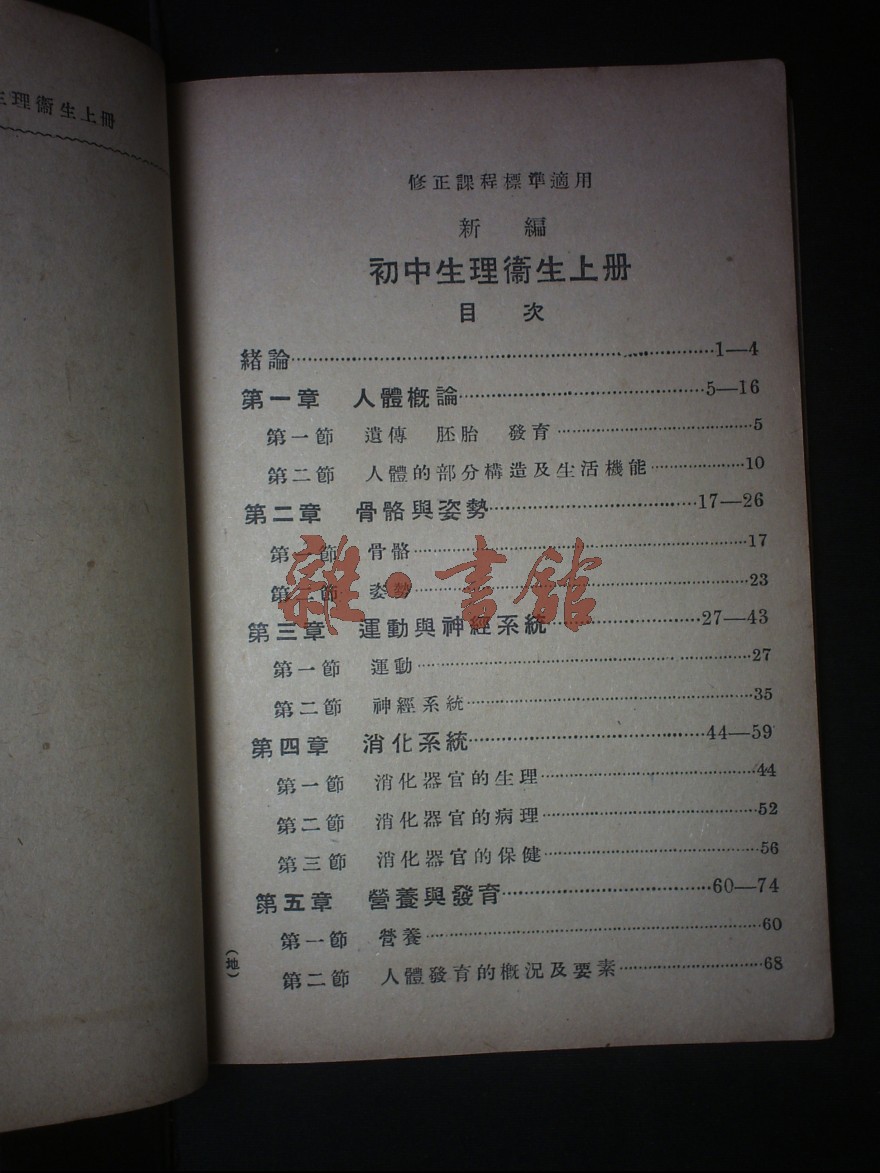 生理衞生上冊
修正課程標準適用
新編
初中生理衞生上册
目次
緒論……1—4
第一章 人體概論……5—16
第一節 遺傳 胚胎 發育……5
第二節 人體的部分構造及生活機能……10
第二章 骨骼與姿勢……17—26
第一節 骨骼……17
第二節 姿勢……23
第三章 運動與神經系統……27—43
第一節 運動……27
第二節 神經系統……35
第四章 消化系統……44—59
第一節 消化器官的生理……44
第二節 消化器官的病理……52
第三節 消化器官的保健……56
第五章 營養與發育……60—74
第一節 營養……60
第二節 人體發育的概況及要素……68
(地)
雜·書館